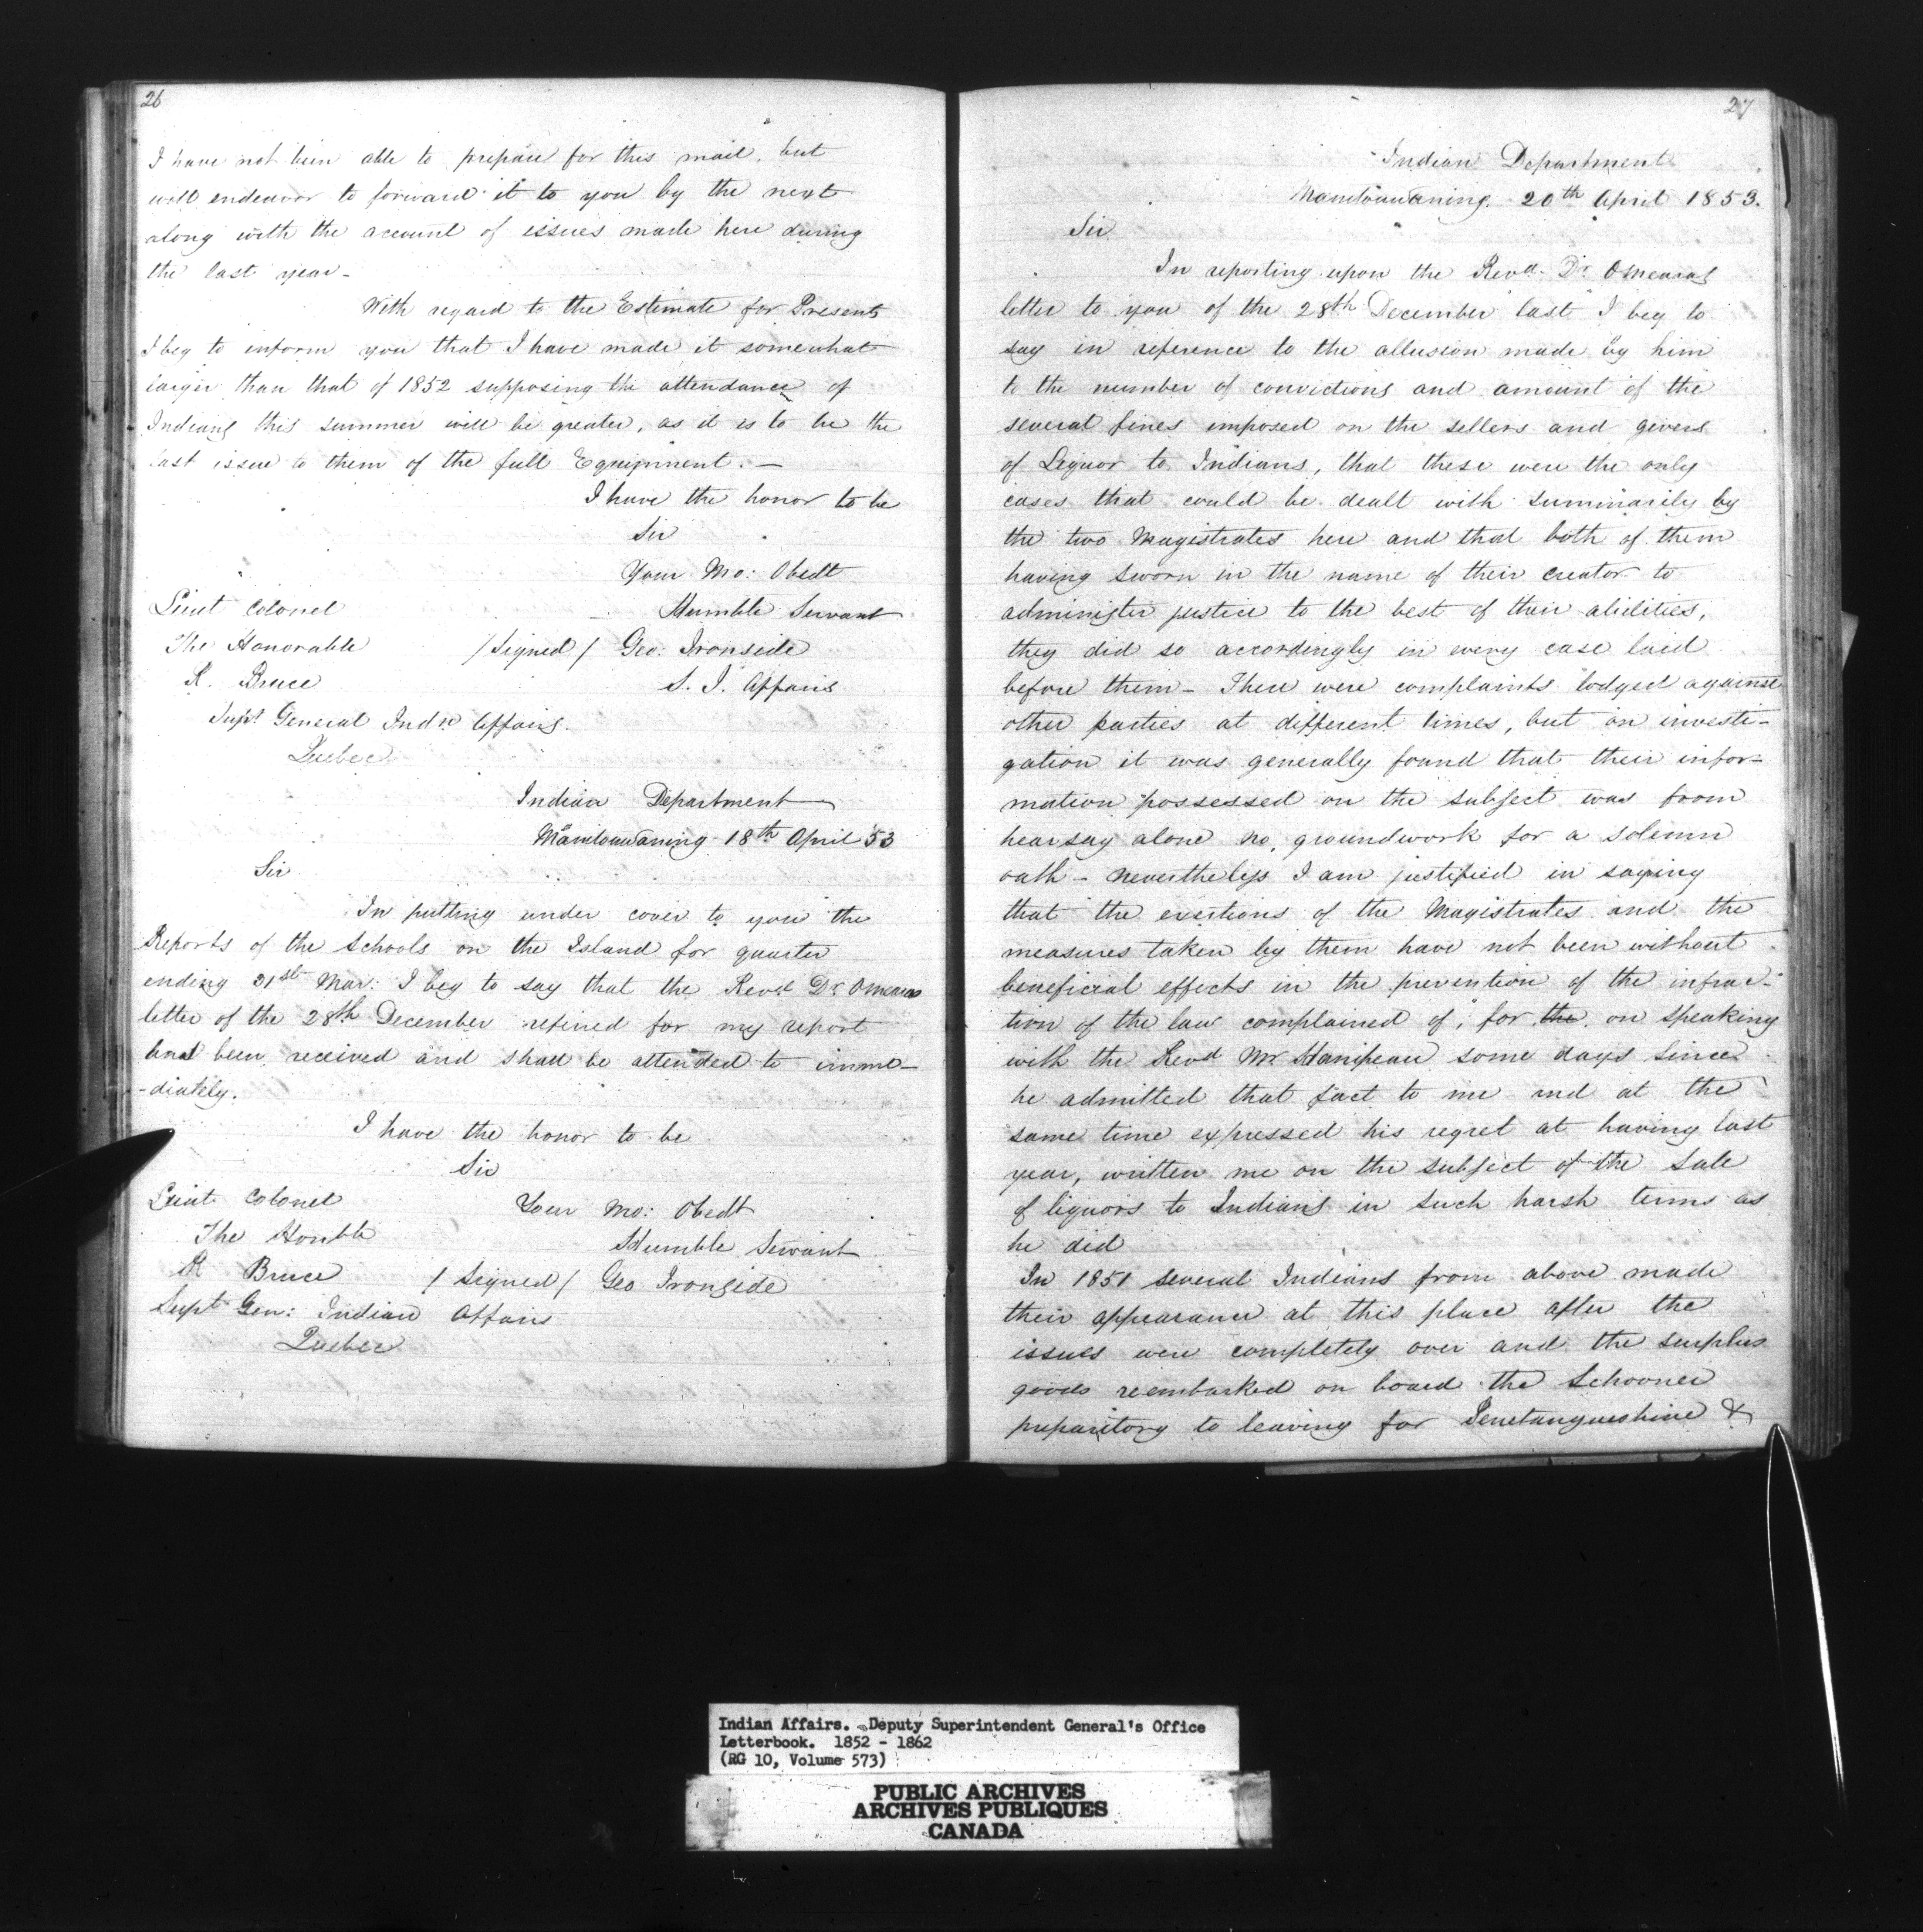 26
I have not been able to prepare for this mail, but
will endeavor to forward it to you by the next
along with the account of issues made here during
the last year -
With regard to the Estimate for Presents
I beg to inform you that I have made it somewhat
larger than that of 1852 supposing the attendance of
Indians this summer will be greater, as it is to be the
last issue to them of the full Equipment. -
I have the honor to be
Sir
Your Mo: Obedt
Lieut Colonel Humble Servant
The Honorable /Signed/ Geo: Ironside
R. Bruce S. I. Affairs
Supt General Indn Affairs.
Quebec
Indian Department
Manitouwaning 18th April 53
Sir
In putting under cover to you the
Reports of the Schools on the Island for quarter
ending 31st Mar: I beg to say that the Revd Dr Omearas
letter of the 28th December refered for my report
has been received and shall be attended to imme-
-diately.
I have the honor to be
Sir
Lieut Colonel Your Mo: Obedt
The Honble Humble Servant
R Bruce / Signed / Geo Ironside
Supt Gen: Indian Affairs
Quebec
27
Indian Department
Manitouwaning. 20th April 1853.
Sir
In reporting upon the Revd. Dr. Omearas
letter to you of the 28th December last I beg to
say in reference to the allusion made by him
to the number of convictions and amount of the
several fines imposed on the sellers and givers
of Liquor to Indians, that these were the only
cases that could be dealt with summarily by
the two Magistrates here and that both of them
having sworn in the name of their creator to
administer justice to the best of their abilities,
they did so accordingly in every case laid
before them - There were complaints lodged against
other parties at different times, but on investi-
gation it was generally found that their infor-
mation possessed on the subject was from
hearsay alone no, groundwork for a solemn
oath - nevertheless I am justified in saying
that the exertions of the Magistrates and the
measures taken by them have not been without
beneficial effects in the prevention of the infrac-
tion of the law complained of, for the on speaking
with the Revd Mr Hanipeau some days since
he admitted that fact to me and at the
same time expressed his regret at having last
year, written me on the subject of the sale
of liquors to Indians in such harsh terms as
he did
In 1851 several Indians from above made
their appearance at this place after the
issues were completely over and the surplus
goods reembarked on board the Schooner
preparitory to leaving for Penetanguishine &
Indian Affairs. Deputy Superintendent General's Office
Letterbook. 1852 - 1862
(RG 10, Volume 573)
PUBLIC ARCHIVES
ARCHIVES PUBLIQUES
CANADA